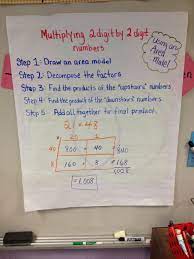 Multiplying 2 digit by 2 digit
numbers
Using an
Area
Model
Step 1: Draw an area model
Step 2: Decompose the factors
Step 3: Find the products of the "upstairs" numbers
Step 4: Find the product of the "downstairs" numbers
Step 5: Add all together for final product.
21 × 48
20 1
40 800 + 40 840
8 160 + 8 +168
1,008
=1,008